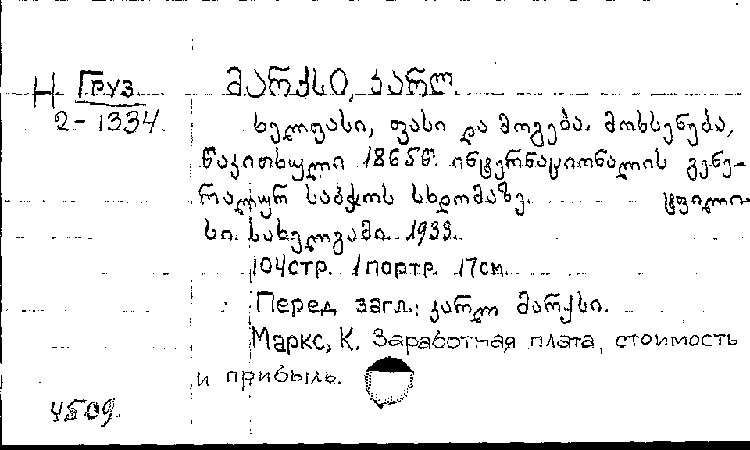 Н Груз
2-1334
მარქსი, კარლ.
ხელფასი, ფასი და მოგება. მოხსენება,
წაკითხული 1865წ. ინტერნაციონალის გენე-
რალურ საბჭოს სხდომაზე. ტფილი-
სი. სახელგამი. 1933.
104стр. 1портр. 17см.
Перед загл.: კარლ მარქსი.
Маркс, К. Заработная плата, стоимость
и прибыль.
4509.